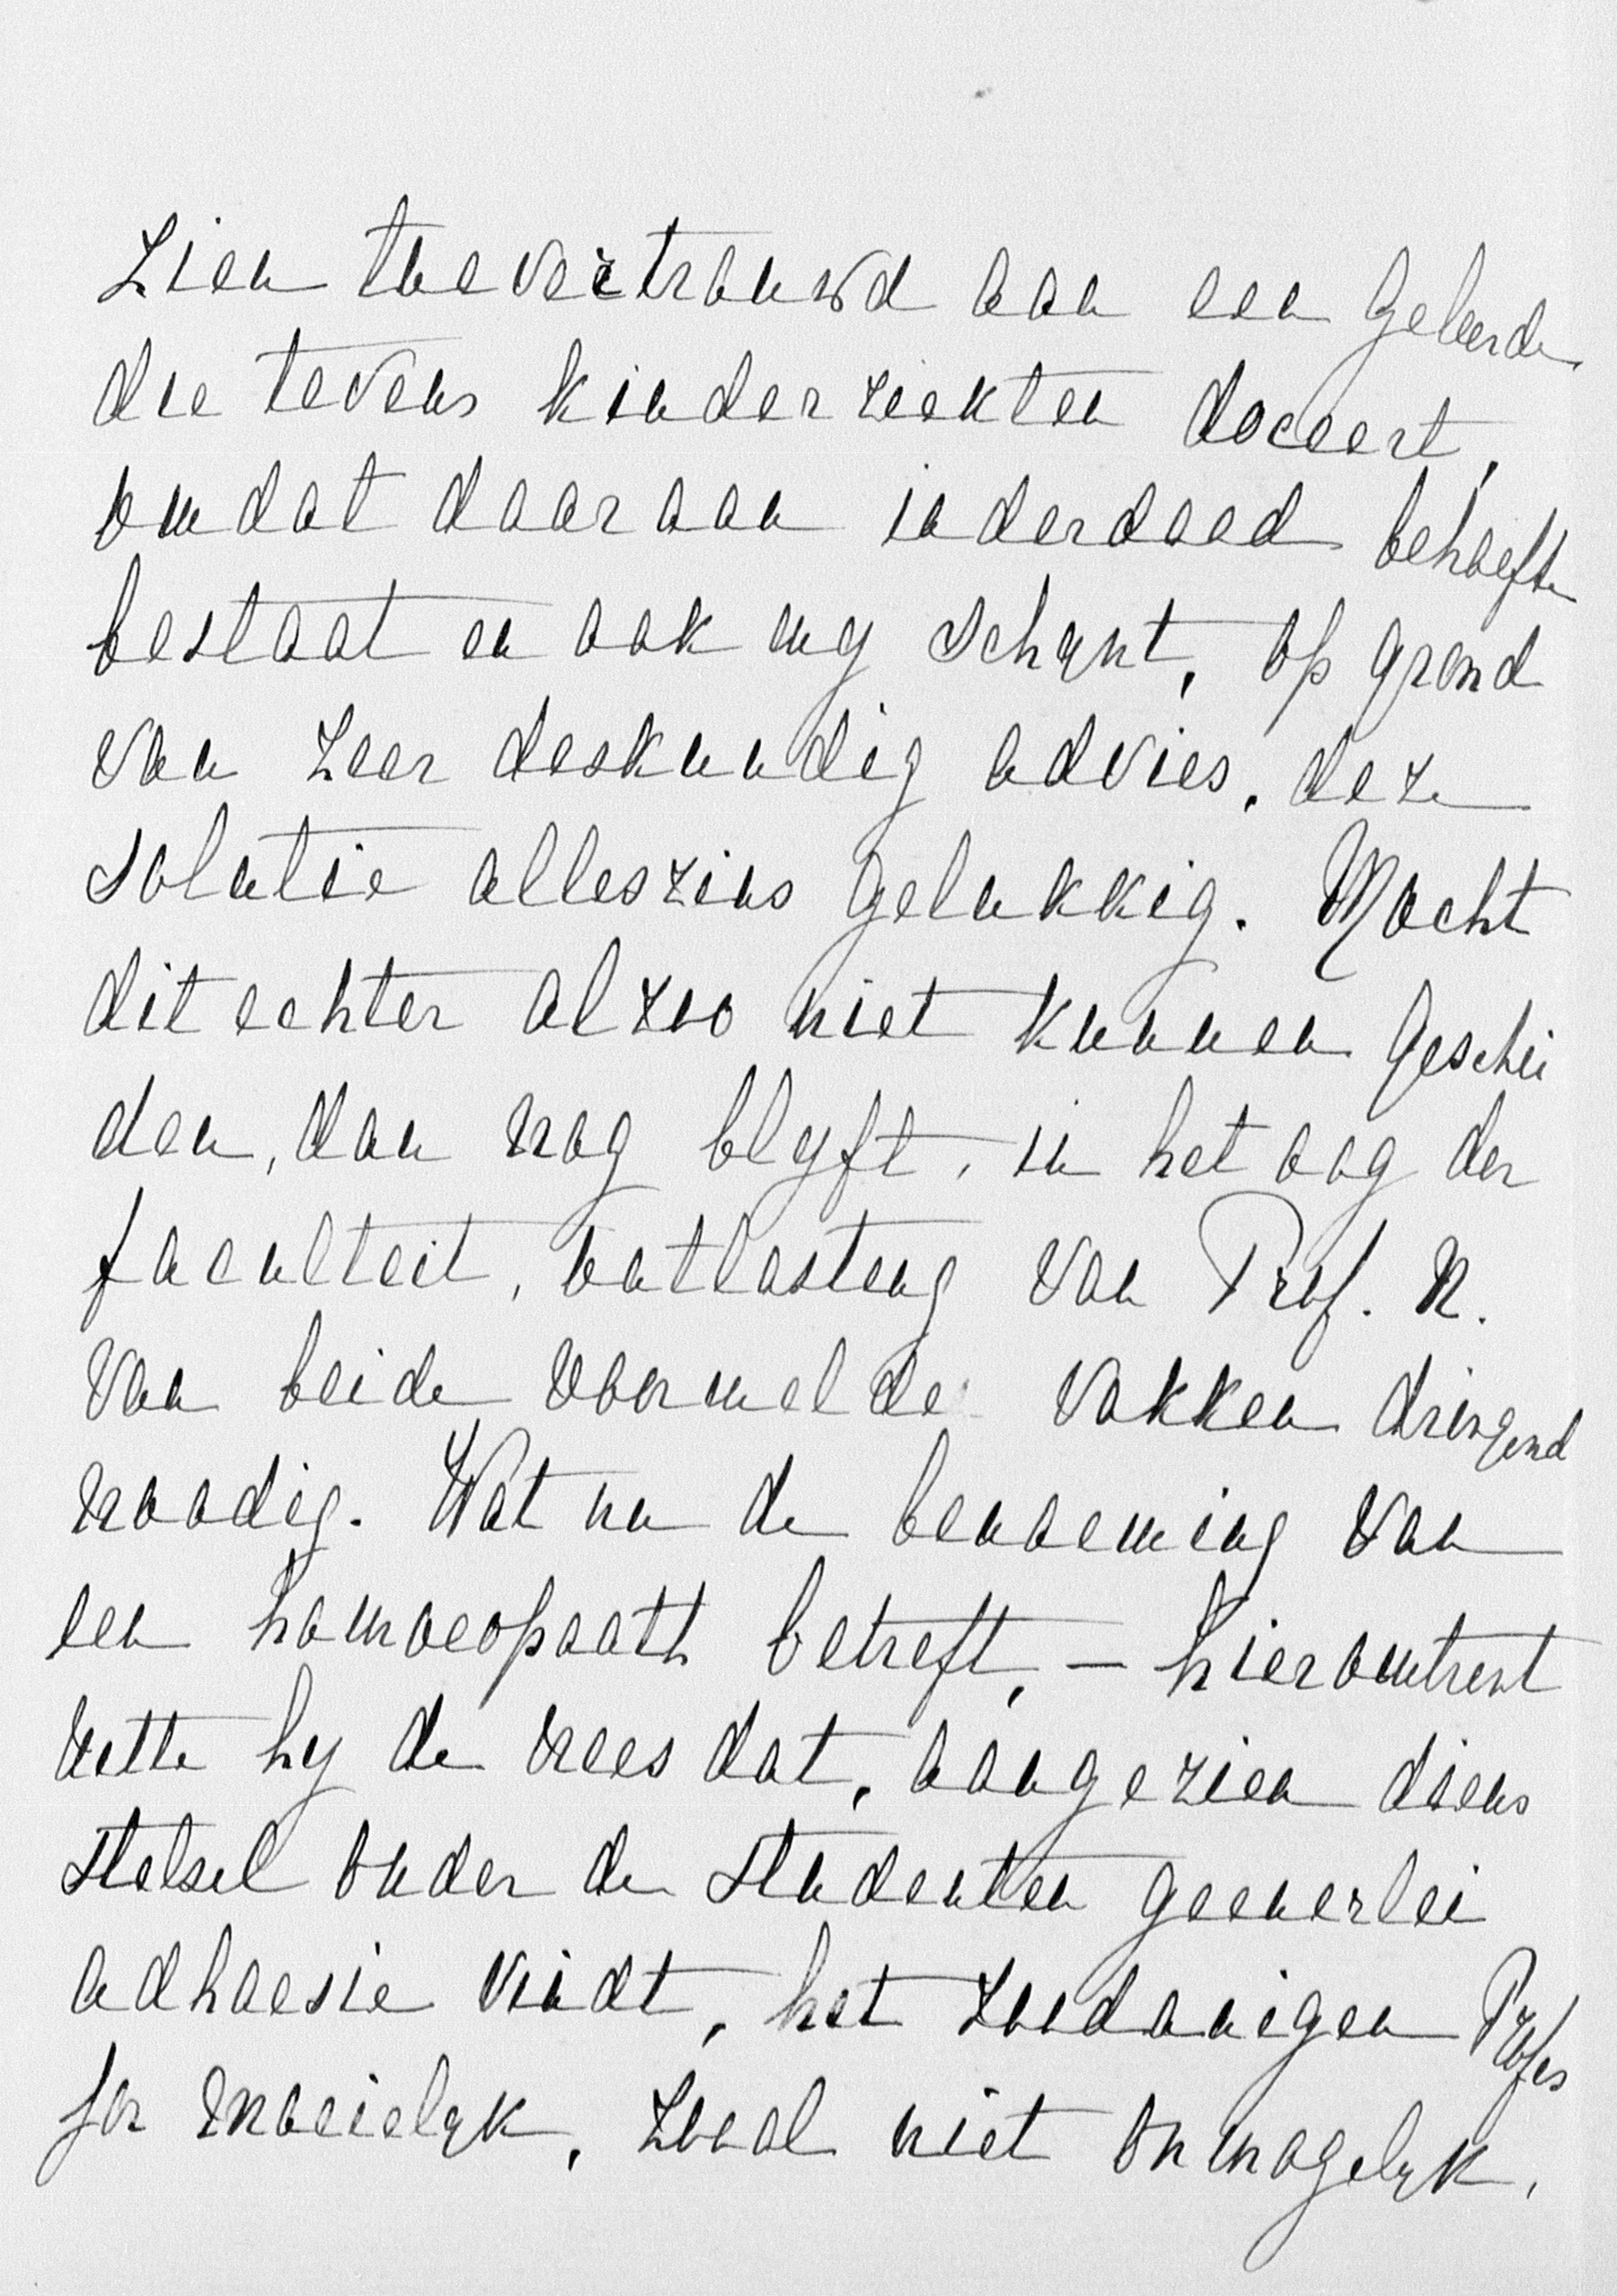 zien toevertrouwd aan een geleerde
die tevens kinderziekten doceert,
omdat daaraan inderdaad behoefte
bestaat en ook my schynt, op grond
van zeer deskundig advies, deze
solutie alleszins gelukkig. Mocht
dit echter alzoo niet kunnen geschie
den, dan nog blyft, in het oog der
faculteit, ontlasting van Prof. N.
van beide voormelde vakken dringend
noodig. Wat nu de benoeming van
een homoeopaath betreft, – hieromtrent
uitte hy de vrees dat, aangezien diens
stelsel onder de studenten geenerlei
adhaesie vindt, het zoodanigen Profes
sor moeielyk, zooal niet onmogelyk,